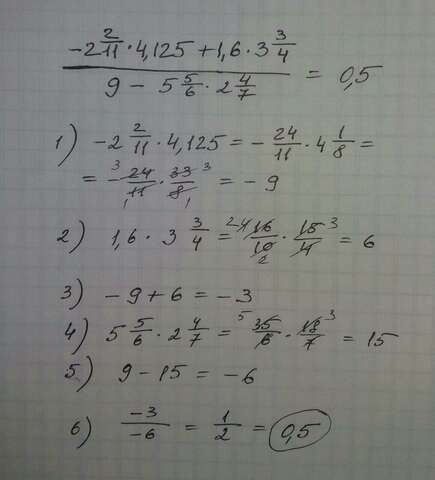 (-2 2/11 · 4,125 + 1,6 · 3 3/4) / (9 - 5 5/6 · 2 4/7) = 0,5
1) -2 2/11 · 4,125 = - 24/11 · 4 1/8 =
= - 3 24/11 1 · 33 3/8 1 = - 9
2) 1,6 · 3 3/4 = 2 4 16/10 2 · 15 3/4 = 6
3) - 9 + 6 = - 3
4) 5 5/6 · 2 4/7 = 5 35/6 · 18 3/7 = 15
5) 9 - 15 = - 6
6) -3/-6 = 1/2 = 0,5